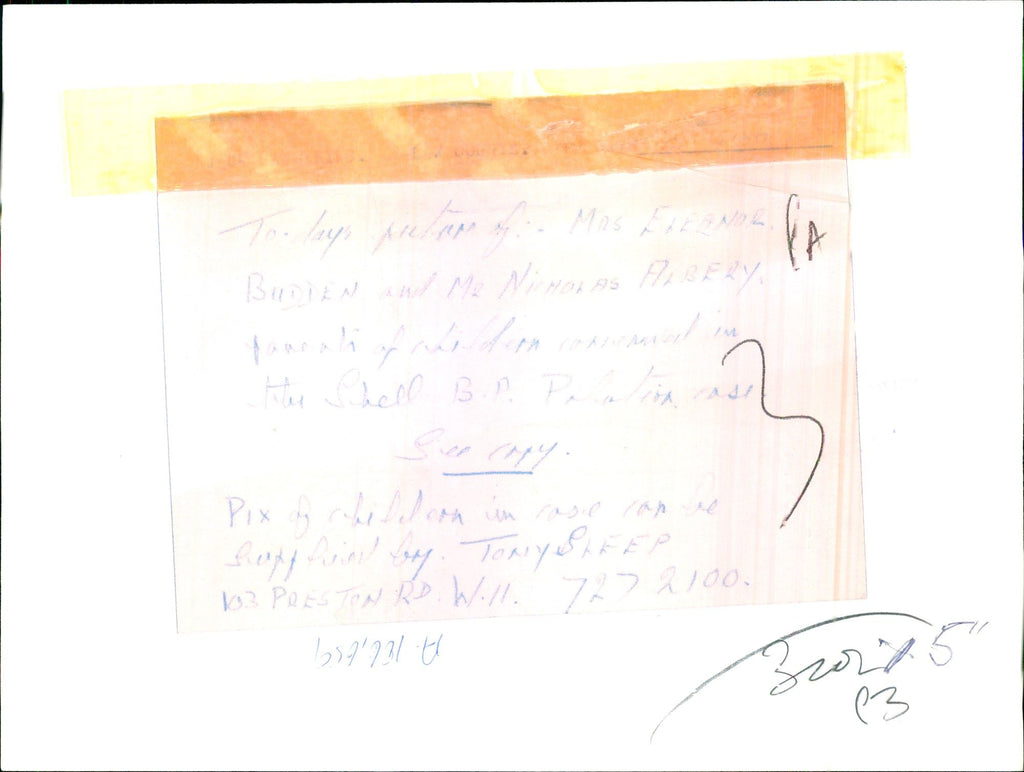 To-days picture of:- MRS ELEANOR
BUDDEN and MR NICHOLAS ALBERY.
parents of children concerned in
the Shell B.P. Polution case
See copy.
PIX of children in case can be
supplied by. TONY SLEEP
103 PRESTON RD. W.11. 727 2100.
PA
5"
P3